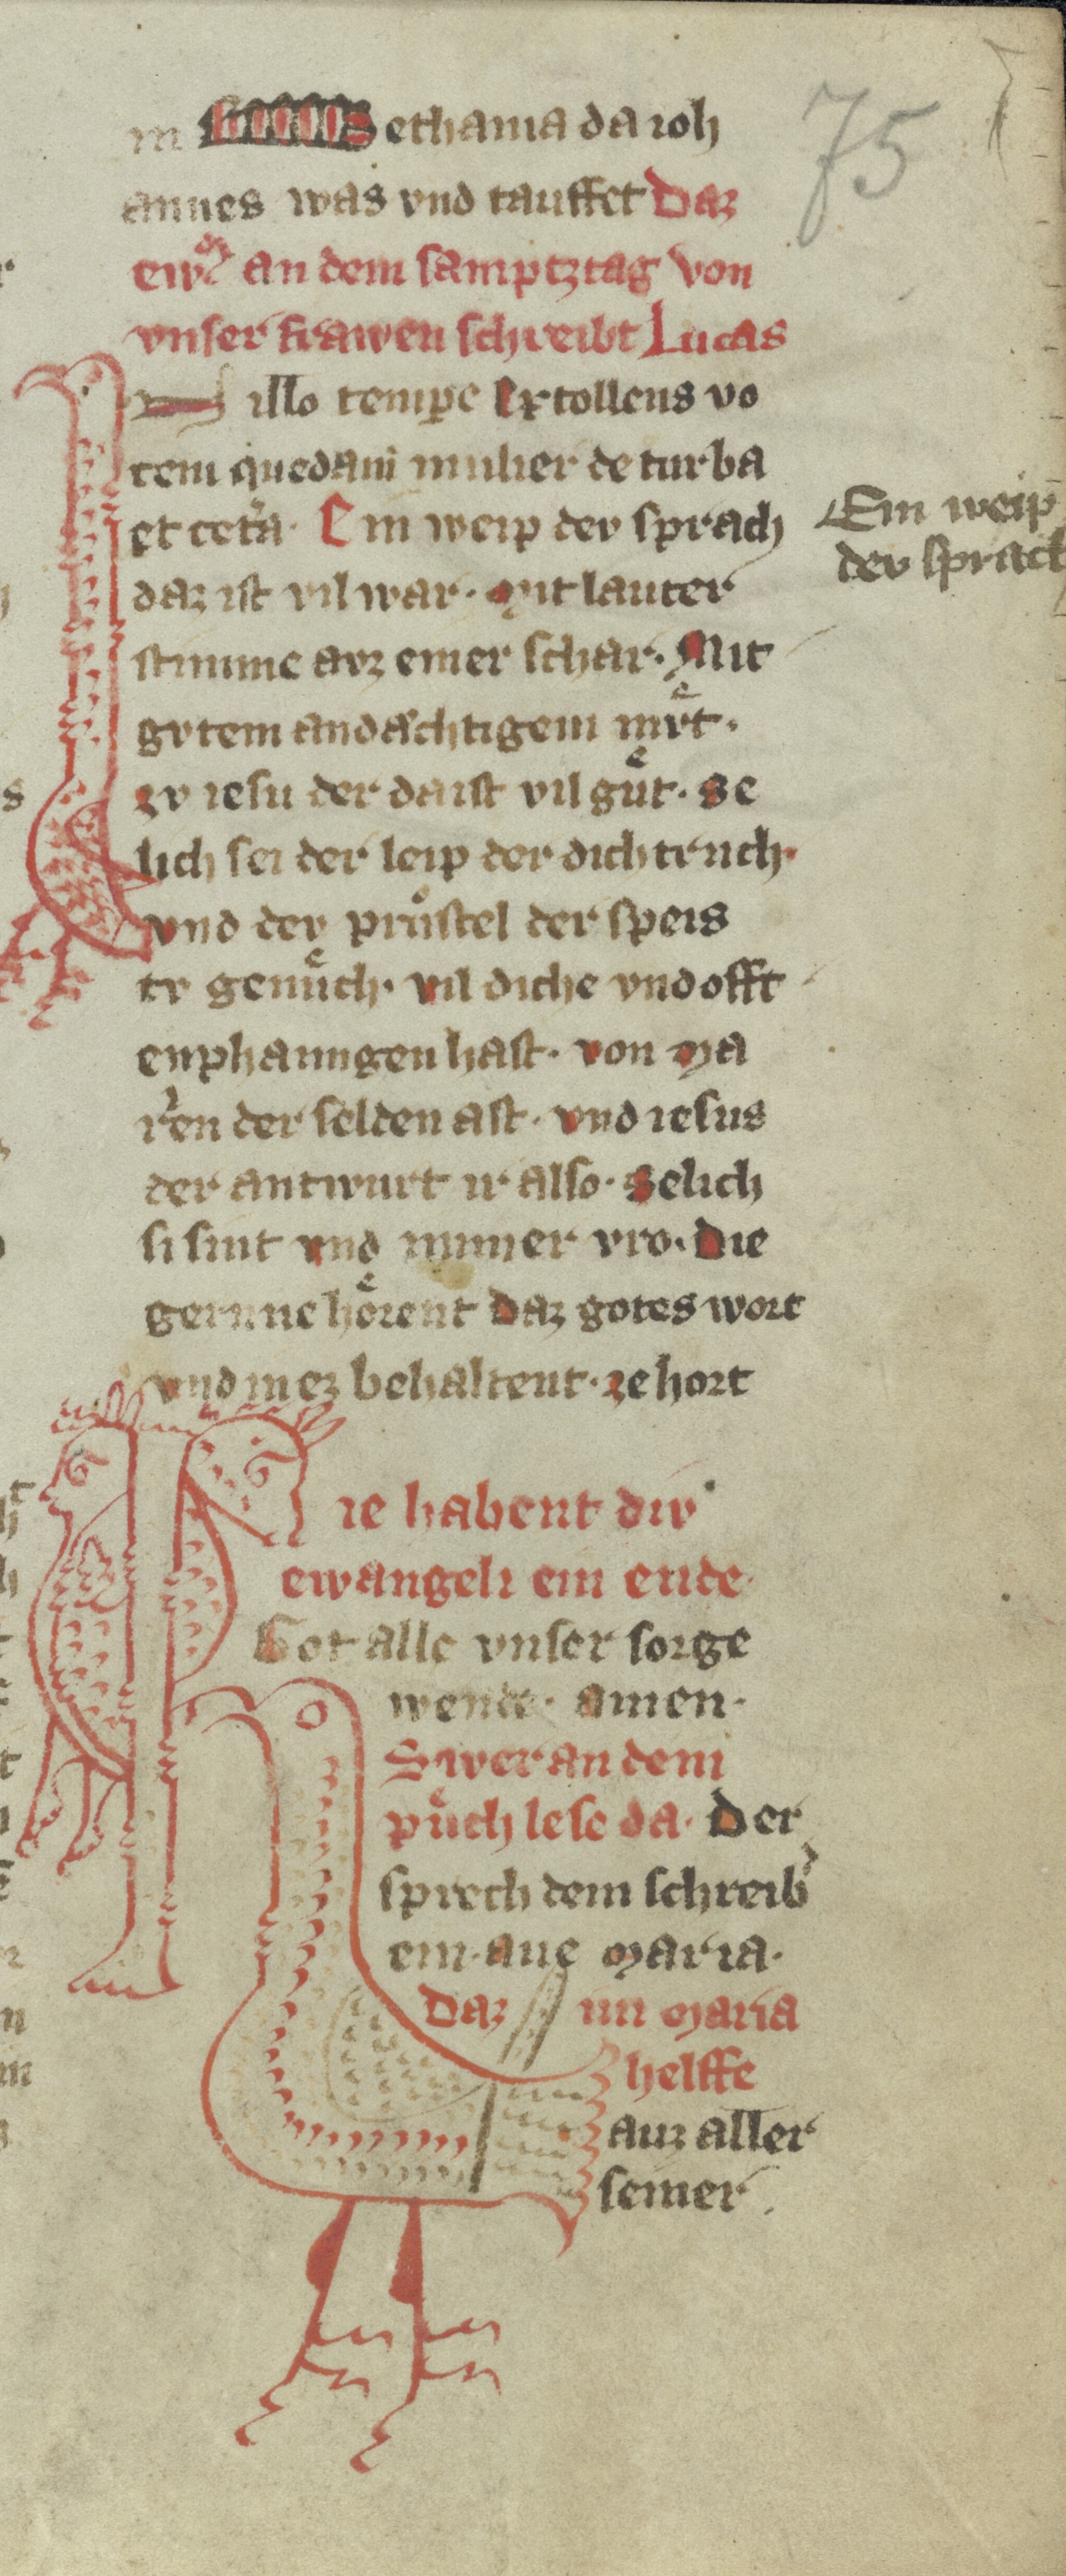 75
in Bethania da ioh
annes was vnd tauffet Daz
ew͛ an dem samptztag von
vnser frawen schreibt Lucas
illo temp̲e Extollens vo
cem quedam̄ mulier de turba
et cet͛a. Ein weip der sprach
daz ist vil war. Mit lauter
stimme avz einer schar. Mit
gvtem andachtigem mvͤt.
zv iesu der da ist vil guͤt. Se
lich sei der leip der dich truch.
vnd dev pruͦstel der speis
tv genuͤch. vil diche vnd offt
enphanngen hast. von Ma
r͛en der selden ast. vnd iesus
der antwurt ir also. Selich
si sint vnd immer vro. Die
gernne hoͤrent Daz gotes wort
vnd in ez behaltent. ze hort
ie habent div
ewangeli ein ende.
Got alle vnser sorge
wende. amen.
Swer an dem
puͤch lese da. Der
sprech dem schreib͛
ein. aue Maria.
Daz im Maria
helffe
auz aller
seiner
Ein weip
dev sprach